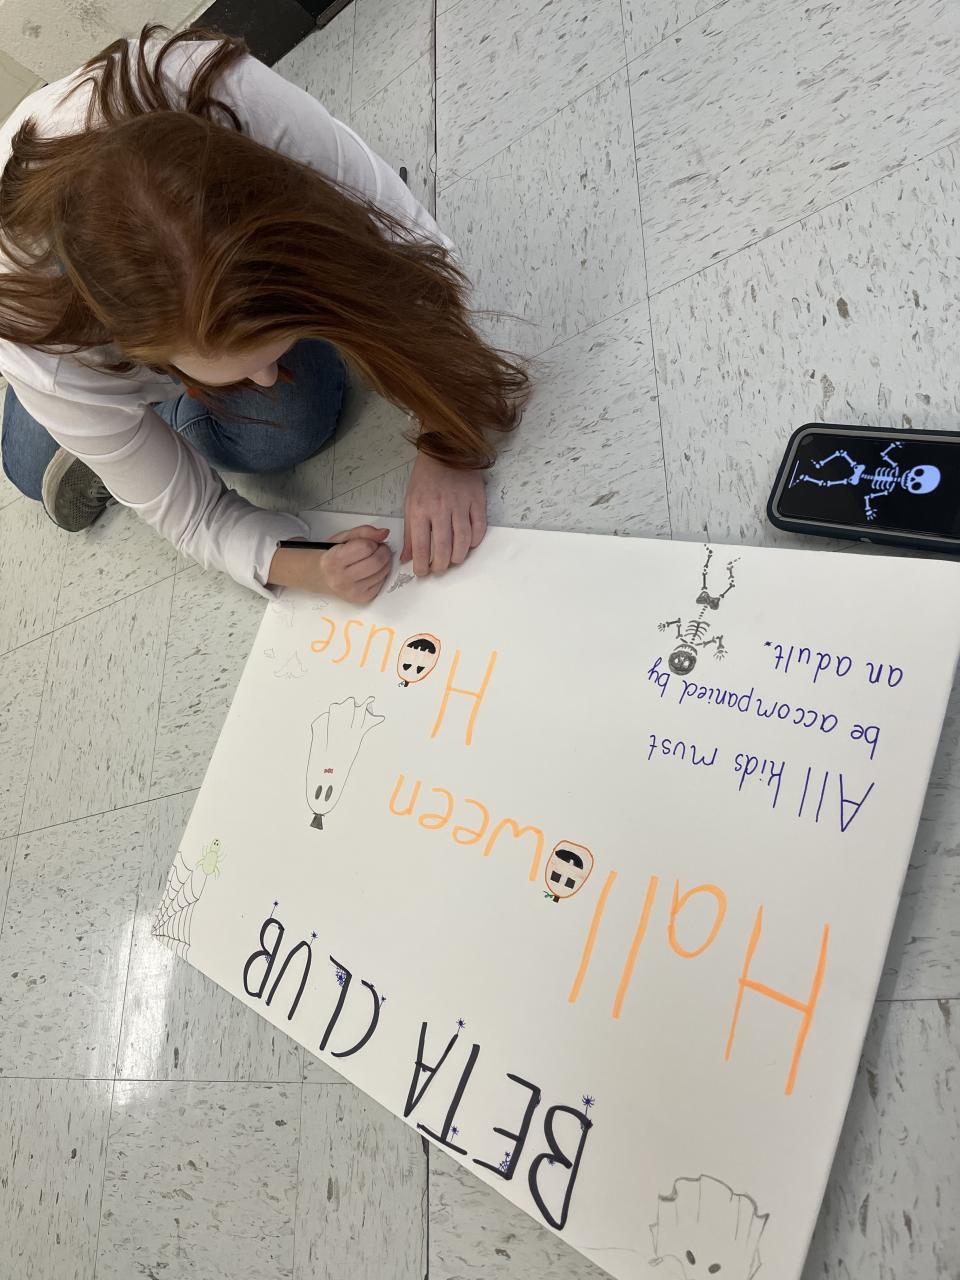 BETA CLUB
Halloween
House
All kids must
be accompanied by
an adult.